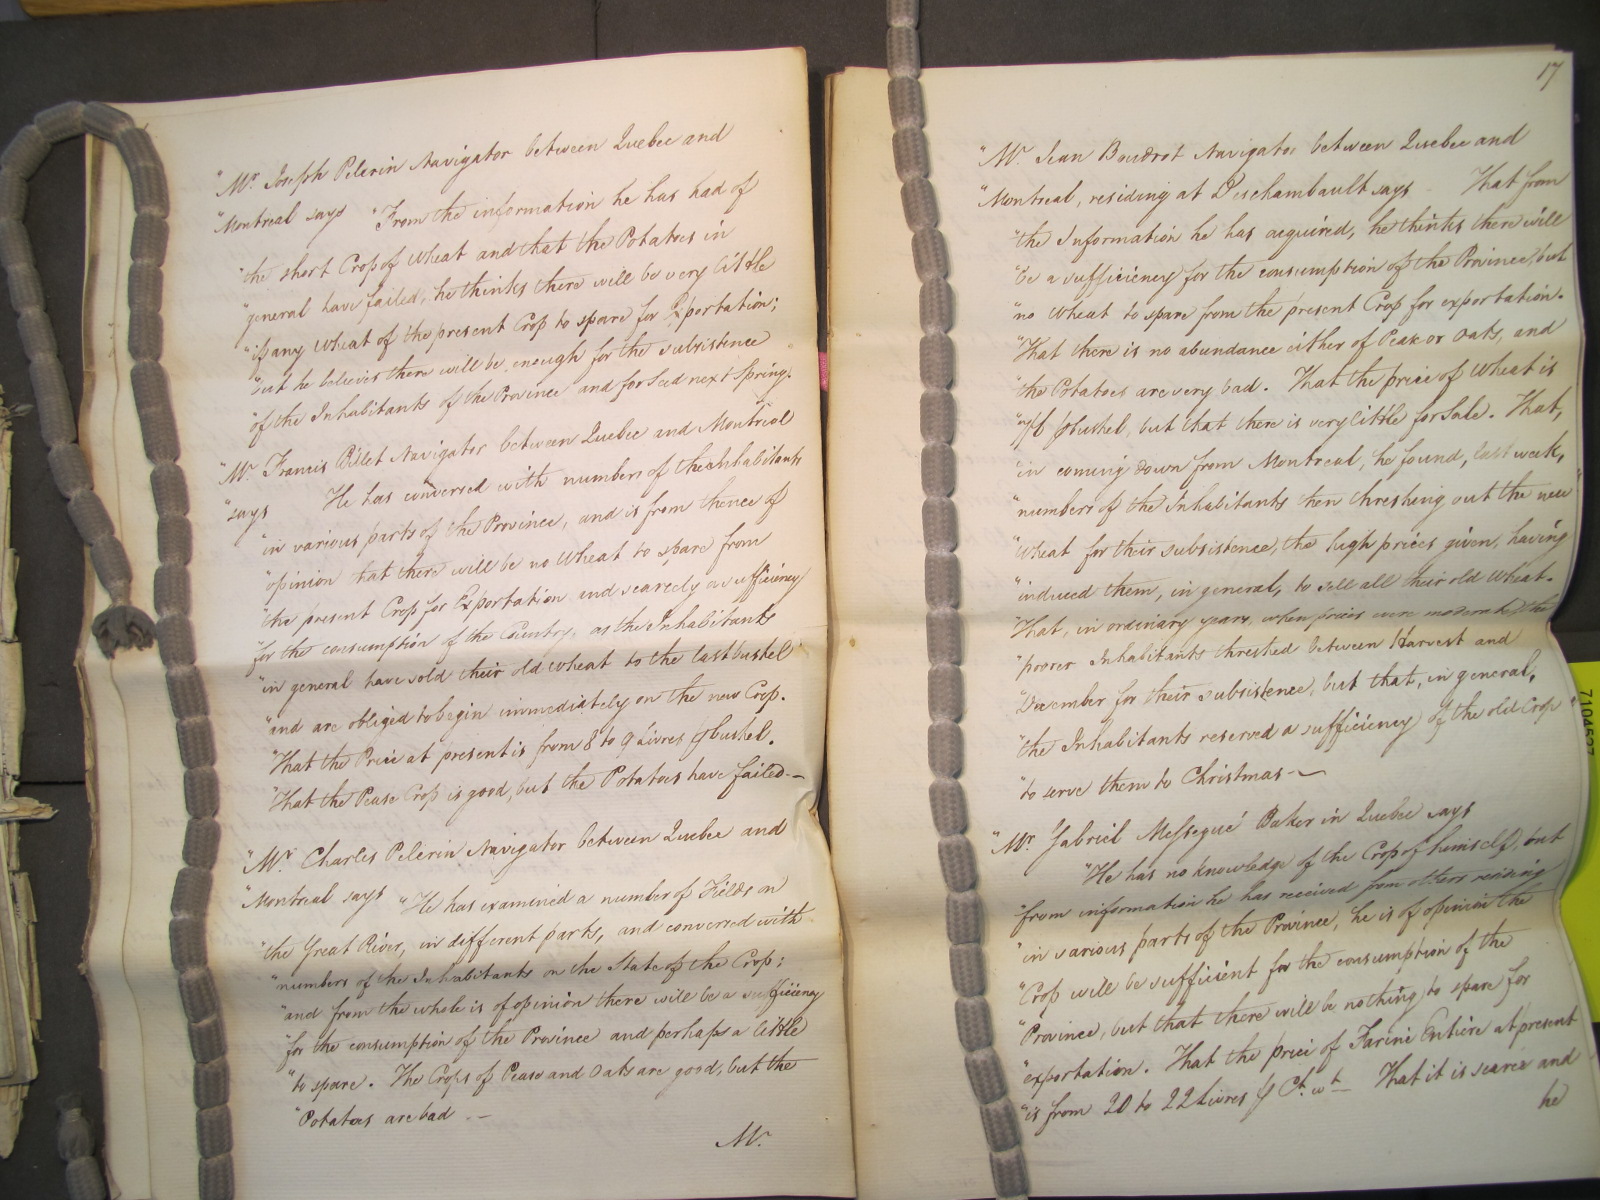 "Mr. Joseph Pelerin Navigator between Quebec and
"Montreal says "From the information he has had of
"the short Crop of Wheat and that the Potatoes in
"general have failed, he thinks there will be very little
"if any Wheat of the present Crop to spare for Exportation;
"but he believes there will be enough for the subsistence
"of the Inhabitants of the Province and for Seed next Spring.
"Mr. Francis Billet Navigator between Quebec and Montreal
"says He has conversed with numbers of the Inhabitants
"in various parts of the Province, and is from thence of
"opinion that there will be no Wheat to spare from
"the present Crop for Exportation and scarcely a sufficiency
"for the consumption of the Country, as the Inhabitants
"in general have sold their old Wheat to the last bushel
"and are obliged to begin immediately on the new Crop.
"That the Price at present is from 8 to 9 Livres ⅌ bushel.
"That the Pease Crop is good, but the Potatoes have failed.—
"Mr. Charles Pelerin Navigator between Quebec and
"Montreal says "He has examined a number of Fields on
"the Great River, in different parts, and conversed with
"numbers of the Inhabitants on the State of the Crop;
"and from the whole is of opinion there will be a sufficiency
"for the consumption of the Province and perhaps a little
"to spare. The Crops of Pease and Oats are good, but the
"Potatoes are bad —
Mr.
17
"Mr. Jean Boudrot Navigator between Quebec and
"Montreal, residing at Deschambault says That from
"the Information he has acquired, he thinks there will
"be a sufficiency for the consumption of the Province, but
"no Wheat to spare from the present Crop for exportation.
"That there is no abundance either of Pease or Oats, and
"the Potatoes are very bad. That the price of Wheat is
⅌ bushel, but that there is very little for Sale. That,
"in coming down from Montreal, he found, last week,
"numbers of the Inhabitants then threshing out the new
"Wheat for their subsistence, the high prices given, having
"induced them, in general, to sell all their old Wheat.
"That, in ordinary years, when prices were moderate, the
"poorer Inhabitants threshed between Harvest and
"December for their subsistence, but that, in general,
"the Inhabitants reserved a sufficiency of the old Crop
"to serve them to Christmas —
"Mr. Gabriel Messegué Baker in Quebec says
"He has no knowledge of the Crop of himself, but
"from information he has received from others residing
"in various parts of the Province, he is of opinion the
"Crop will be sufficient for the consumption of the
"Province, but that there will be nothing to spare for
"exportation. That the price of Farine Entiere at present
"is from 20 to 22 Livres ⅌ Ct. wt. That it is scarce and
he
7104527